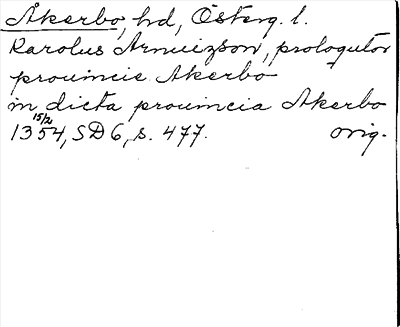 Åkerbo, hd, Österg. l.
Karolus Arnuizson, prologutor
prouincie Akerbo
in dicta prouincia Akerbo
15/2
1354, SD 6, s. 477. orig.